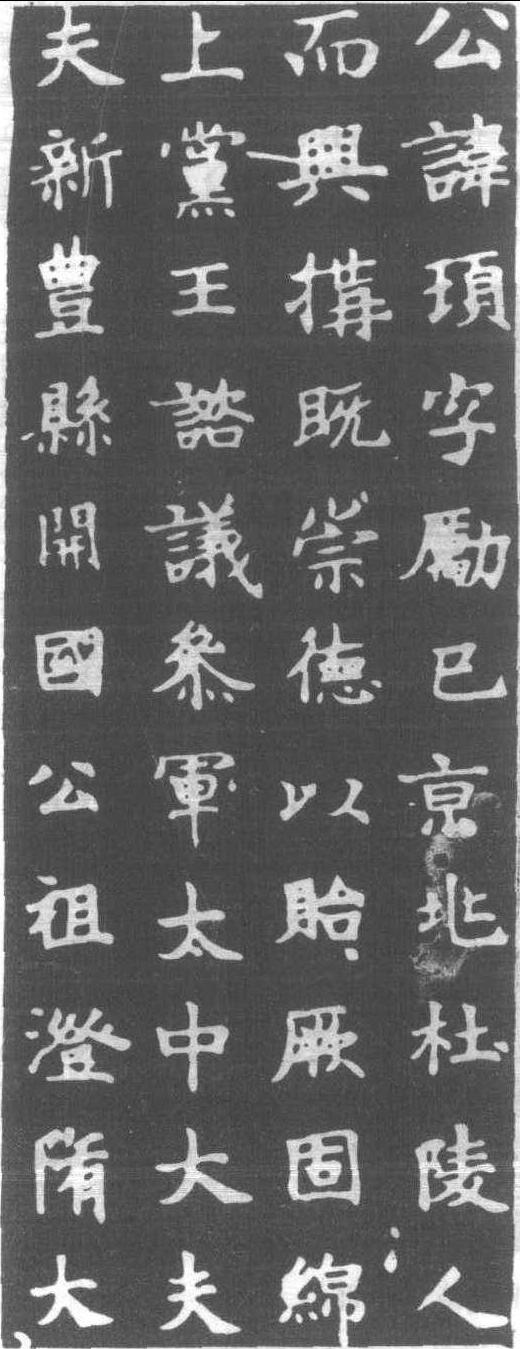 公諱頊字勵己京兆杜陵人
而興搆既崇德以貽厥固綿
上黨王諮議叅軍太中大夫
夫新豊縣開國公祖澄隋大